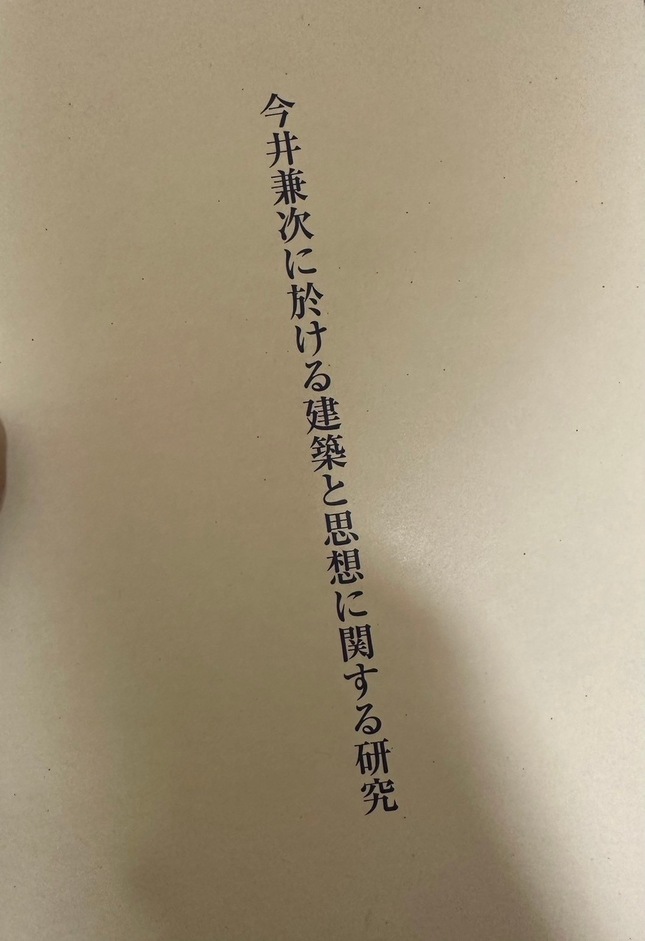 今井兼次に於ける建築と思想に関する研究